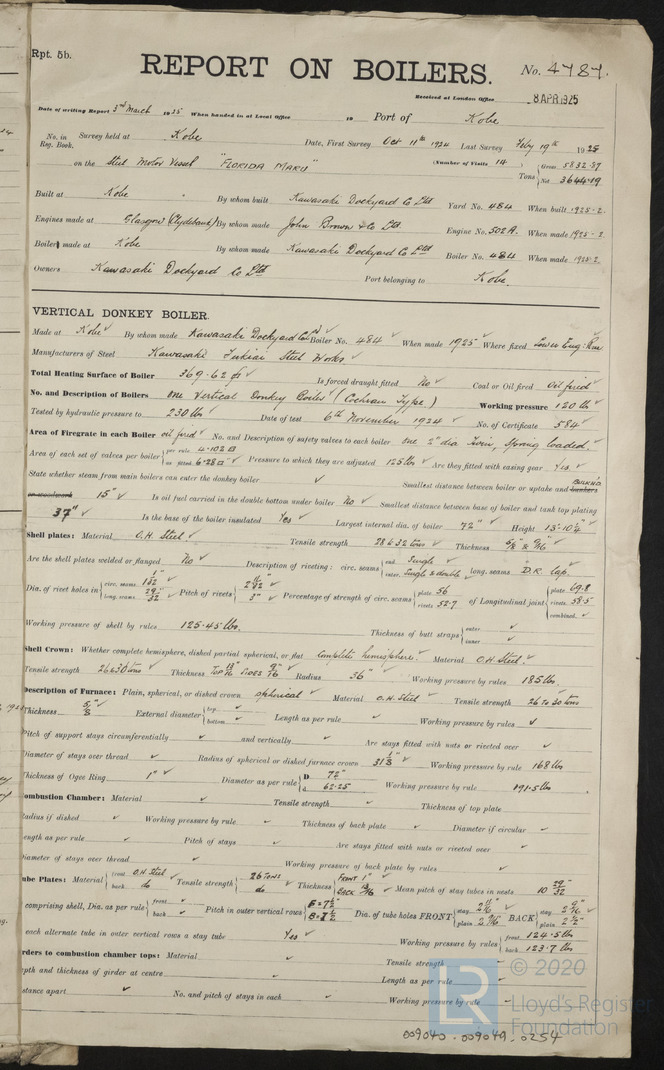 Rpt. 5b.
REPORT ON BOILERS.
No. 4787.
Received at London Office 8 APR 1925
Date of writing Report 3rd March 1925 When handed in at Local Office 19 Port of Kobe
No. in Reg. Book. Survey held at Kobe Date, First Survey Oct 11th 1924 Last Survey Feby 19th 1925
on the Steel Motor Vessel "FLORIDA MARU" (Number of Visits 14 Tons Gross 5832.37 Net 3644.19
Built at Kobe By whom built Kawasaki Dockyard Co Ltd Yard No. 484 When built 1925-2
Engines made at Glasgow (Clydebank) By whom made John Brown & Co Ltd Engine No. 502A. When made 1925-2
Boilers made at Kobe By whom made Kawasaki Dockyard Co Ltd Boiler No. 484 When made 1925.2
Owners Kawasaki Dockyard Co Ltd Port belonging to Kobe
VERTICAL DONKEY BOILER.
Made at Kobe By whom made Kawasaki Dockyard Co Ltd Boiler No. 484 When made 1925 Where fixed Lower Eng: Rm
Manufacturers of Steel Kawasaki Steel Works
Total Heating Surface of Boiler 369.62 Is forced draught fitted No Coal or Oil fired Oil fired
No. and Description of Boilers one Vertical Donkey Boiler (Cochran Type.) Working pressure 120 lbs
Tested by hydraulic pressure to 230 lbs Date of test 6th November 1924 No. of Certificate 584
Area of Firegrate in each Boiler oil fired No. and Description of safety valves to each boiler one 2" dia Twin, Spring loaded.
Area of each set of valves per boiler per rule 4.102 as fitted 6.28 Pressure to which they are adjusted 125 lbs Are they fitted with easing gear Yes.
State whether steam from main boilers can enter the donkey boiler ✓ Smallest distance between boiler or uptake and bunkers
or woodwork 15" Is oil fuel carried in the double bottom under boiler No Smallest distance between base of boiler and tank top plating
37" Is the base of the boiler insulated Yes Largest internal dia. of boiler 72" Height 13'-10¼"
Shell plates: Material O.H. Steel. Tensile strength 28 & 32 tons Thickness
Are the shell plates welded or flanged No Description of riveting: circ. seams end Single inter. Single & double long. seams D.R. lap.
Dia. of rivet holes in circ. seams long. seams 29/32 Pitch of rivets 3" Percentage of strength of circ. seams plate 56 rivets 52.7 of Longitudinal joint plate 69.8 rivets 58.5 combined ✓
Working pressure of shell by rules 125.45 lbs. Thickness of butt straps outer ✓ inner ✓
Shell Crown: Whether complete hemisphere, dished partial spherical, or flat Complete hemisphere. Material O.H. Steel.
Tensile strength 26 & 30 tons Thickness Top 13/16" Sides 9/16" Radius 36" Working pressure by rules 185 lbs
Description of Furnace: Plain, spherical, or dished crown spherical Material O.H. Steel Tensile strength 26 to 30 tons
Thickness 5/8" External diameter top ✓ bottom ✓ Length as per rule ✓ Working pressure by rules ✓
Pitch of support stays circumferentially ✓ and vertically ✓ Are stays fitted with nuts or riveted over ✓
Diameter of stays over thread ✓ Radius of spherical or dished furnace crown 31⅛" Working pressure by rule 168 lbs
Thickness of Ogee Ring 1" Diameter as per rule D 72" d 62.25 Working pressure by rule 191.5 lbs
Combustion Chamber: Material ✓ Tensile strength ✓ Thickness of top plate
Radius if dished ✓ Working pressure by rule ✓ Thickness of back plate ✓ Diameter if circular ✓
Length as per rule ✓ Pitch of stays ✓ Are stays fitted with nuts or riveted over ✓
Diameter of stays over thread ✓ Working pressure of back plate by rules ✓
Tube Plates: Material front O.H. Steel back do Tensile strength 26 tons do Thickness FRONT 1" BACK 13/16 Mean pitch of stay tubes in nests 10 29/32
comprising shell, Dia. as per rule front ✓ back ✓ Pitch in outer vertical rows Dia. of tube holes FRONT stay 2 11/16" plain 2 9/16" BACK stay 2 9/16" plain 2 ½"
each alternate tube in outer vertical rows a stay tube Yes Working pressure by rules front 124.5 lbs back 123.7 lbs
Girders to combustion chamber tops: Material ✓ Tensile strength ✓
Depth and thickness of girder at centre ✓ Length as per rule ✓
Distance apart ✓ No. and pitch of stays in each ✓ Working pressure by rule ✓
© 2020
LR
Lloyd's Register
Foundation
009040-009049-0254